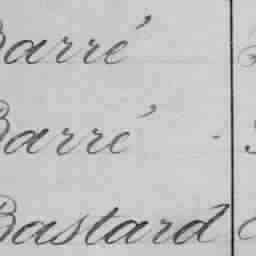 Barré
Barré
Bastard